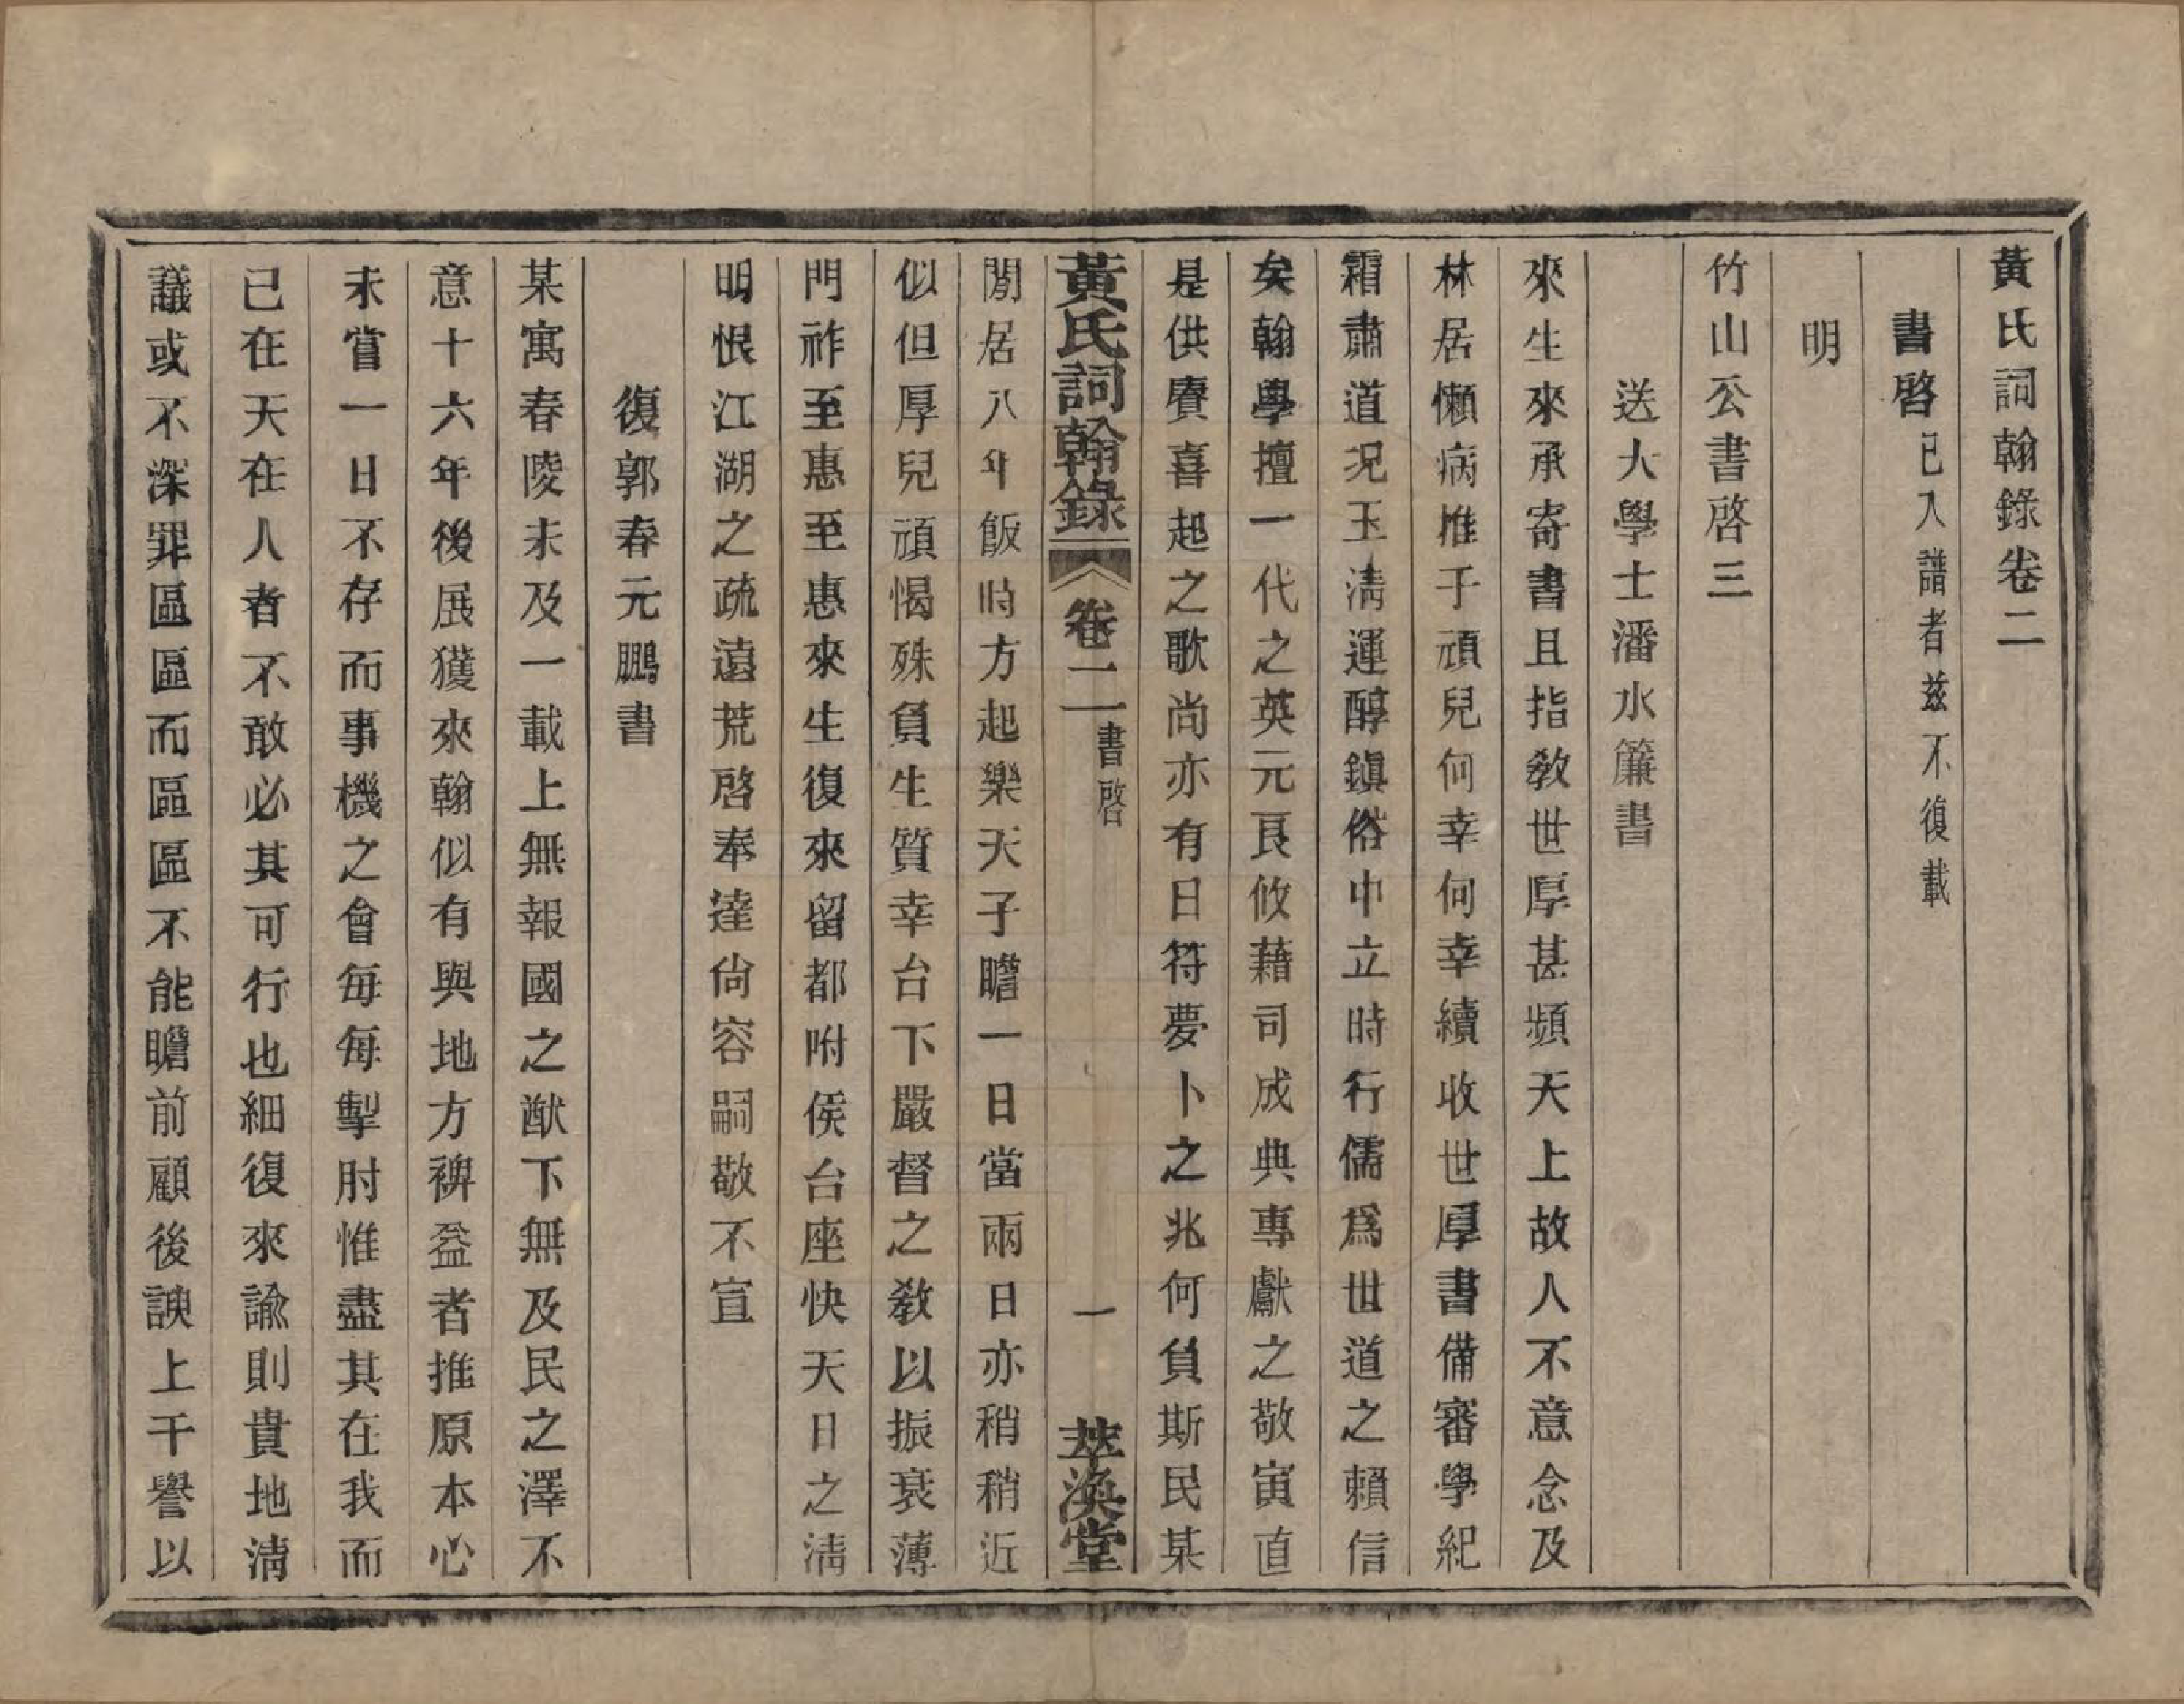 黃氏詞翰錄卷二
書啓已入譜者兹不復載
明
竹山公書啓三
送大學士潘水簾書
來生來承寄書且指教世厚甚頻天上故人不意念及
林居懶病推子頑兒何幸何幸續收世厚書備審學紀
霜肅道況玉清運醇鎭俗中立時行儒爲世道之賴信
矣翰學擅一代之英元良攸藉司成典專獻之敬寅直
是供賡喜起之歌尚亦有日符夢卜之兆何負斯民某
黃氏詞翰錄 卷二 書啓 一 萃渙堂
閒居八年飯時方起樂天子瞻一日當兩日亦稍稍近
似但厚兒頑愒殊負生質幸台下嚴督之教以振衰薄
門祚至惠至惠來生復來留都附侯台座快天日之清
明恨江湖之疏遠荒啓奉達尙容嗣敬不宣
復郭春元鵬書
某寓春陵未及一載上無報國之猷下無及民之澤不
意十六年後展獲來翰似有與地方裨益者推原本心
未嘗一日不存而事機之會每每掣肘惟盡其在我而
已在天在人者不敢必其可行也細復來諭則貴地清
議或不深罪區區而區區不能瞻前顧後諛上干譽以